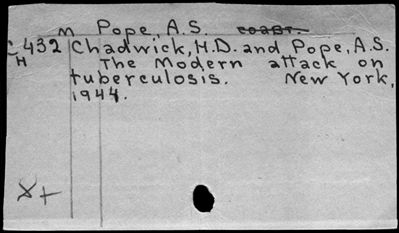 m Pope, A.S. coast.
C432 Chadwick, H.D. and Pope, A.S.
H The Modern attack on
tuberculosis. New York,
1944.
X+